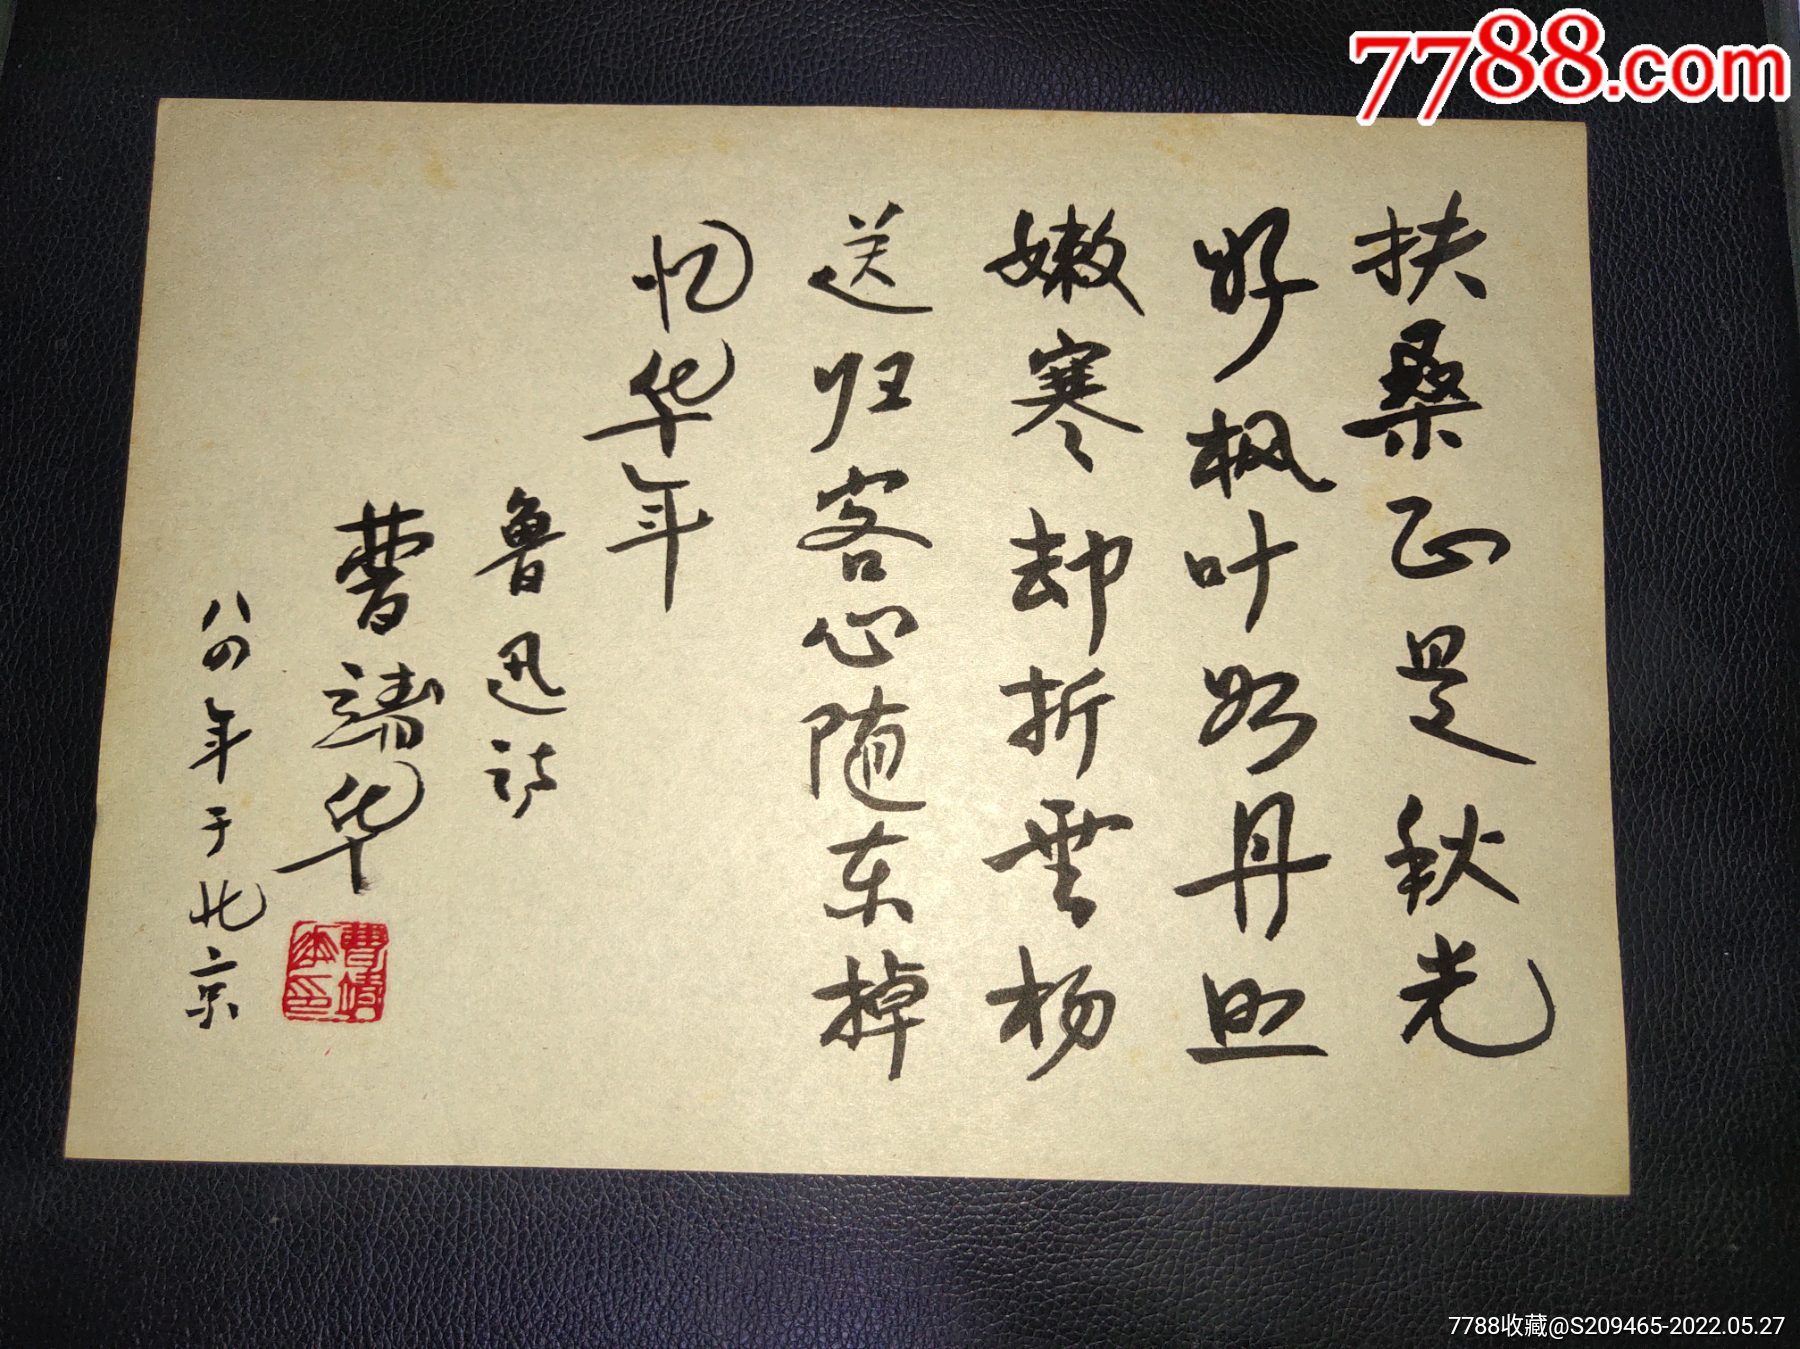 7788.com
扶桑正是秋光
好枫叶如丹照
嫩寒却折垂杨
送归客心随东棹
忆华年
鲁迅诗
曹靖华
八四年于北京
曹靖华印
7788收藏@S209465-2022.05.27